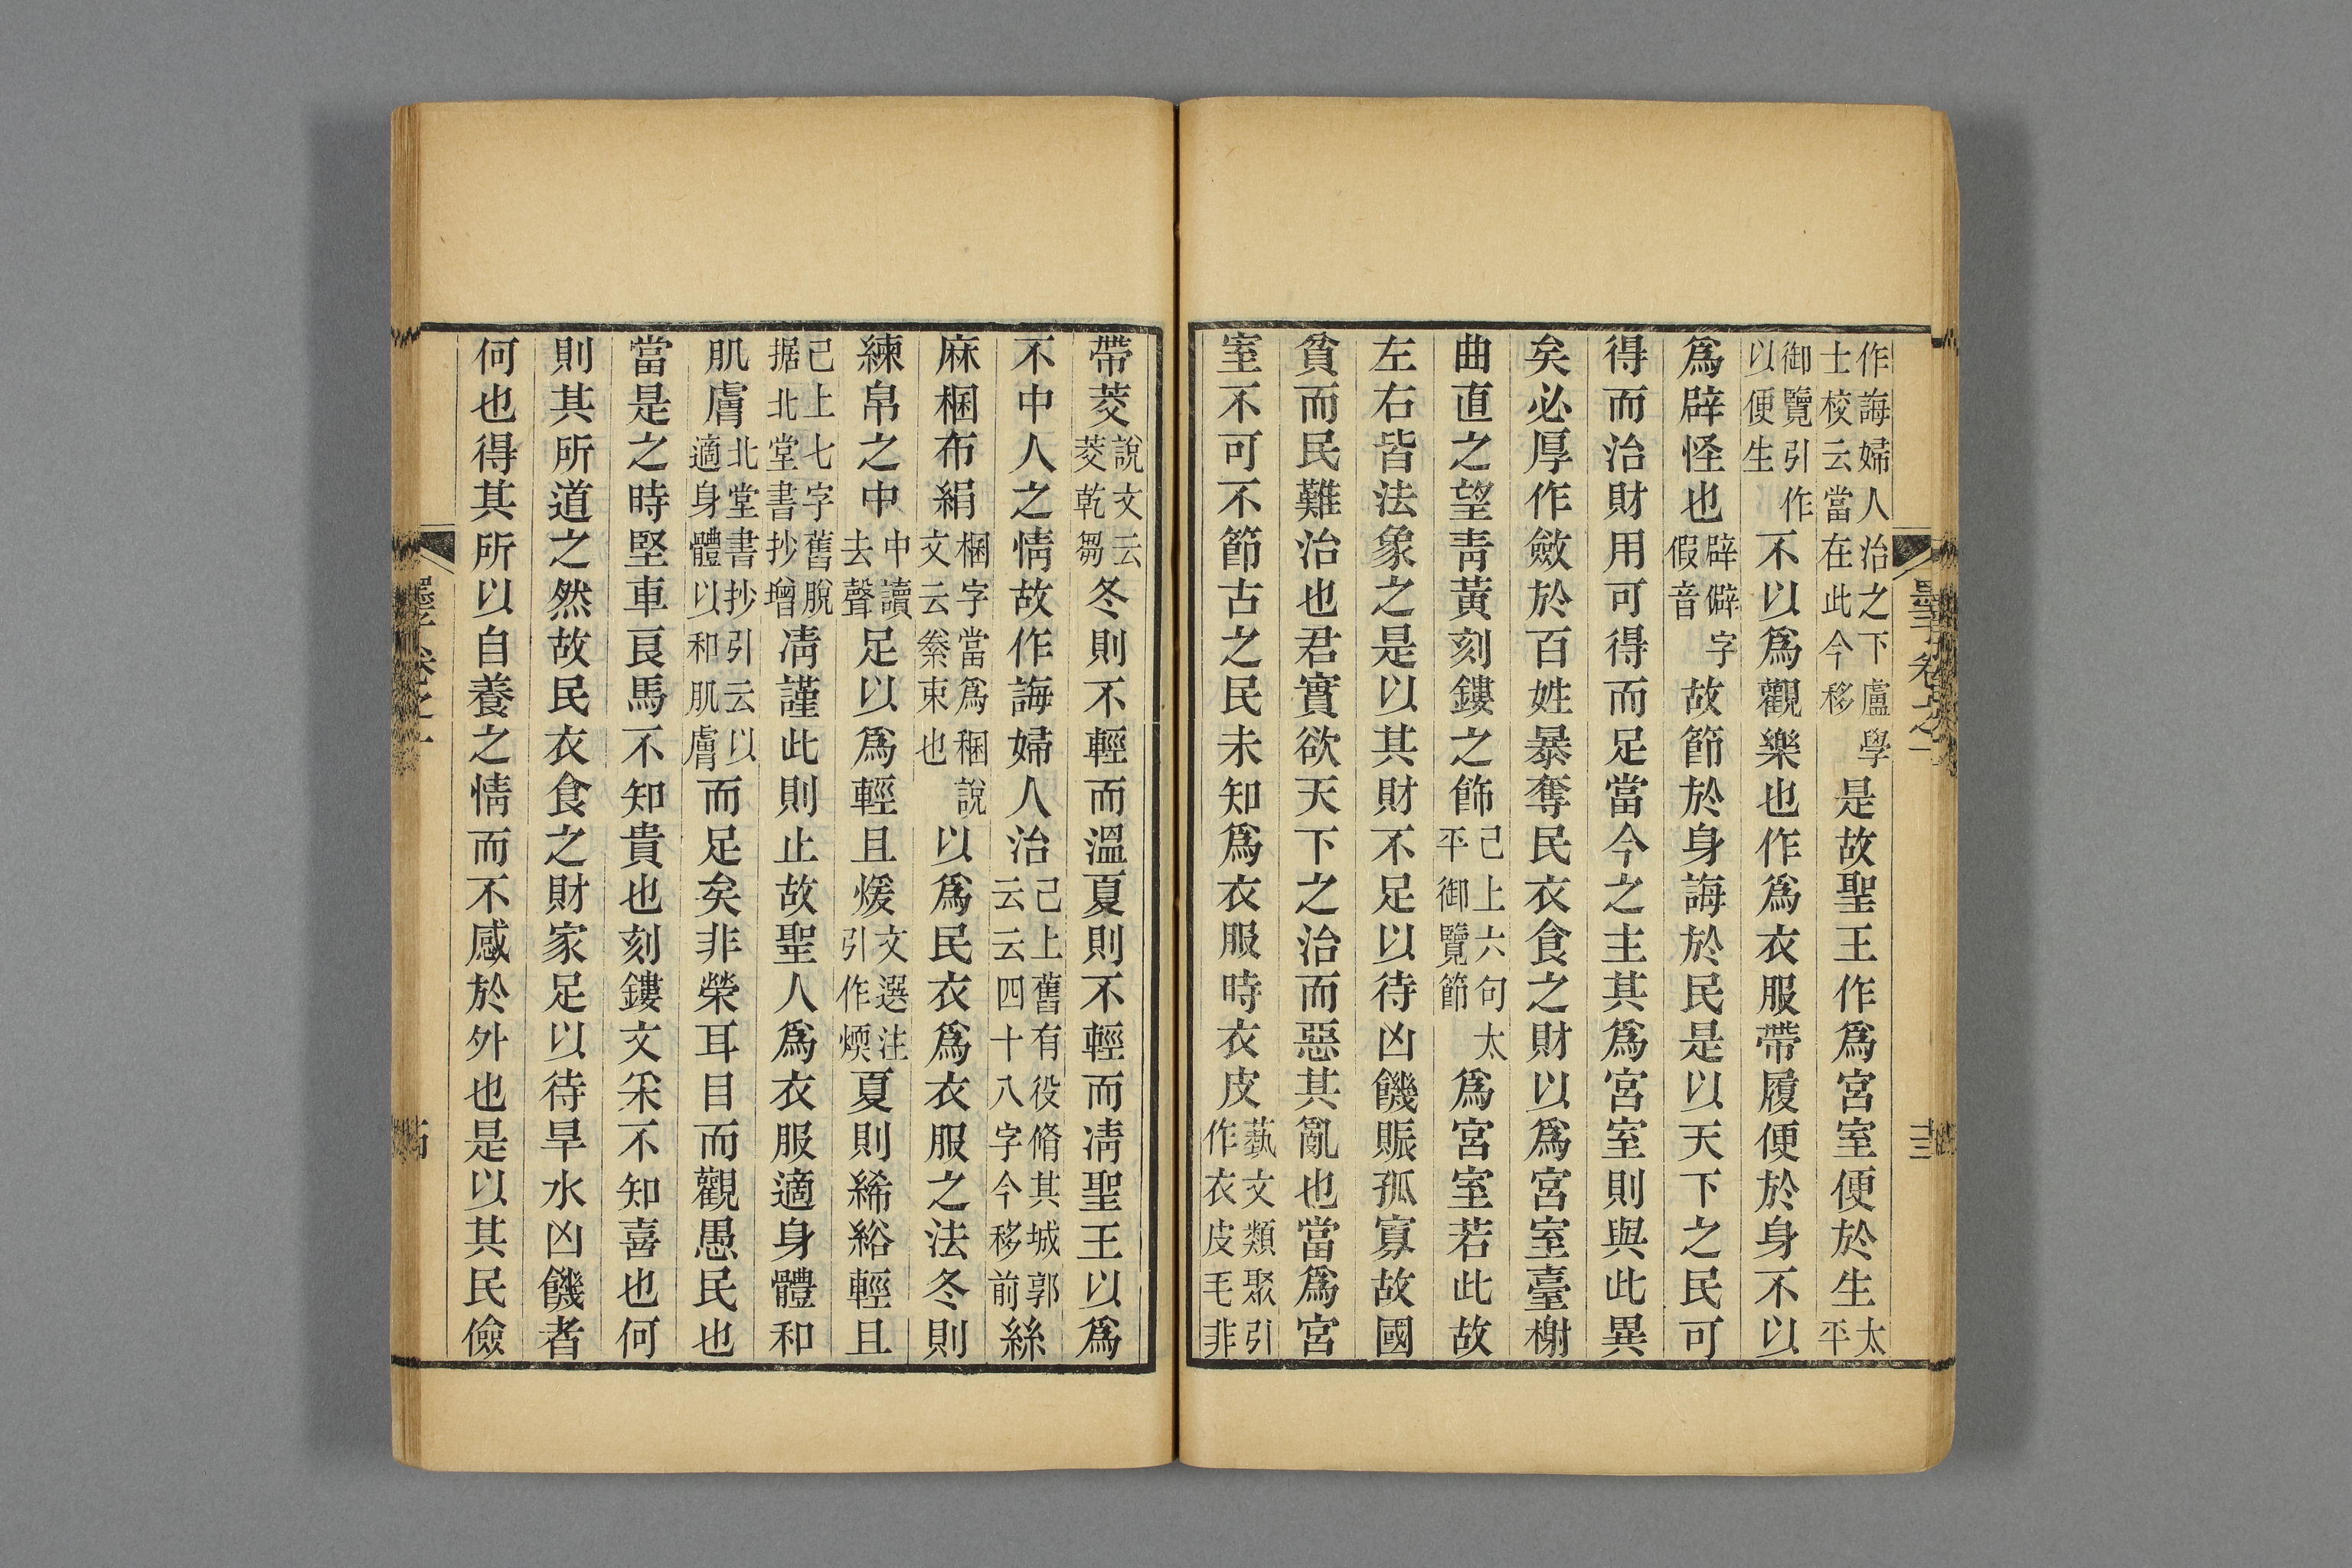 作誨婦人治之下盧學士校云當在此今移是故聖王作爲宮室便於生太平
御覽引作以便生不以爲觀樂也作爲衣服帶履便於身不以
爲辟怪也辟僻字假音故節於身誨於民是以天下之民可
得而治財用可得而足當今之主其爲宮室則與此異
矣必厚作斂於百姓暴奪民衣食之財以爲宮室臺榭
曲直之望靑黃刻鏤之飾己上六句太平御覽節爲宮室若此故
左右皆法象之是以其財不足以待凶饑賑孤寡故國
貧而民難治也君實欲天下之治而惡其亂也當爲宮
室不可不節古之民未知爲衣服時衣皮蓺文類聚引作衣皮毛非
墨子卷之一
十三
帶茭說文云茭乾芻冬則不輕而溫夏則不輕而凊聖王以爲
不中人之情故作誨婦人治己上舊有役脩其城郭云云四十八字今移前絲
麻梱布絹梱字當爲稇說文云絭束也以爲民衣爲衣服之法冬則
練帛之中中讀去聲足以爲輕且煖文選注引作煗夏則絺綌輕且
己上七字舊脫据北堂書抄增凊謹此則止故聖人爲衣服適身體和
肌膚北堂書抄引云以適身體以和肌膚而足矣非榮耳目而觀愚民也
當是之時堅車良馬不知貴也刻鏤文采不知喜也何
則其所道之然故民衣食之財家足以待旱水凶饑者
何也得其所以自養之情而不感於外也是以其民儉